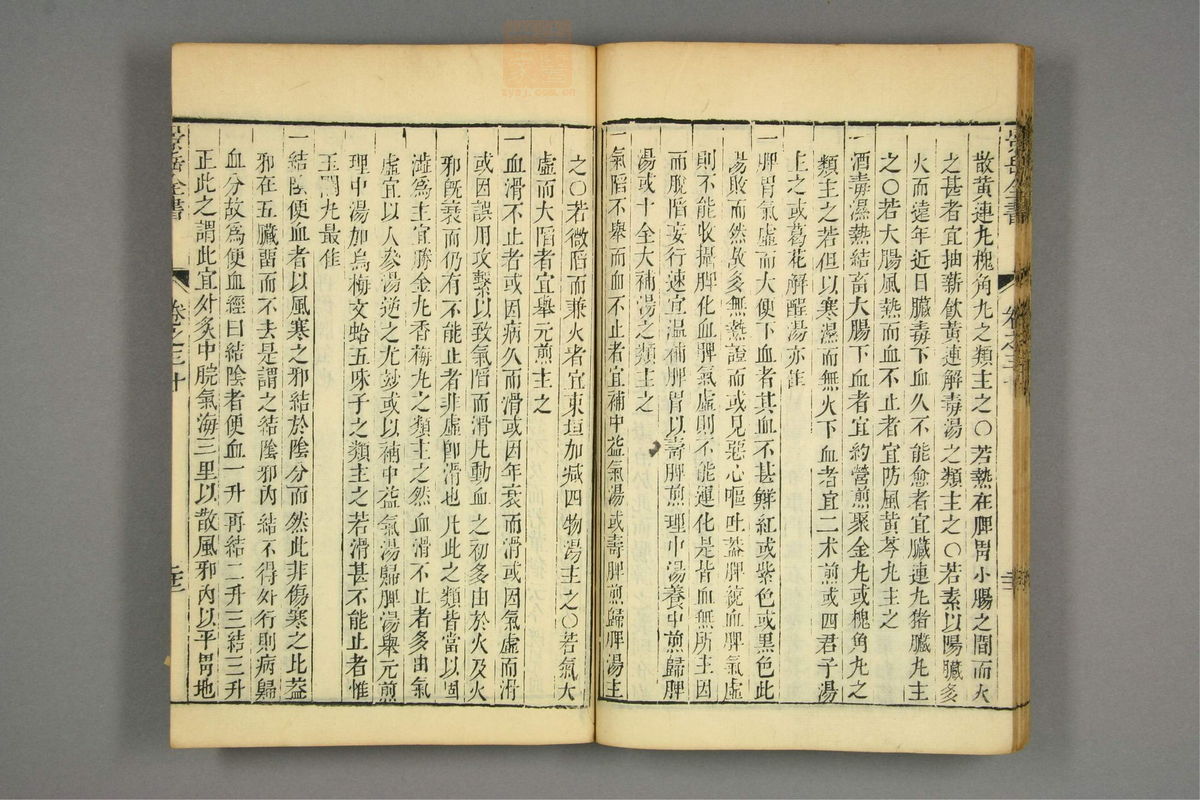 散黃連丸槐角丸之類主之〇若熱在脾胃小腸之間而火
之甚者宜抽薪飲黃連解毒湯之類主之〇若素以腸臟多
火而遠年近日臟毒下血久不能愈者宜臟連丸猪臟丸主
之〇若大腸風熱而血不止者宜防風黃芩丸主之
一酒毒濕熱結畜大腸下血者宜約營煎聚金丸或槐角丸之
類主之若但以寒濕而無火下血者宜二术煎或四君子湯
主之或葛花解酲湯亦佳
一脾胃氣虛而大便下血者其血不甚鮮紅或紫色或黑色此
陽敗而然故多無熱證而或見惡心嘔吐葢脾統血脾氣虛
則不能收攝脾化血脾氣虛則不能運化是皆血無所主因
而脫䧟妄行速宜温補脾胃以壽脾煎理中湯養中煎歸脾
湯或十全大補湯之類主之
一氣䧟不舉而血不止者宜補中益氣湯或壽脾煎歸脾湯主
之〇若微䧟而兼火者宜東垣加减四物湯主之〇若氣大
虛而大䧟者宜舉元煎主之
一血滑不止者或因病久而滑或因年衰而滑或因氣虛而滑
或因誤用攻擊以致氣䧟而滑凡動血之初多由於火及火
邪旣衰而仍有不能止者非虛卽滑也凡此之類皆當以固
澁爲主宜勝金丸香梅丸之類主之然血滑不止者多由氣
虛宜以人參湯送之尤妙或以補中益氣湯歸脾湯舉元煎
理中湯加烏梅文蛤五味子之類主之若滑甚不能止者惟
玉關丸最佳
一結隂便血者以風寒之邪結於隂分而然此非傷寒之比葢
邪在五臟留而不去是謂之結隂邪內結不得外行則病歸
血分故爲便血經曰結隂者便血一升再結二升三結三升
正此之謂此宜外灸中脘氣海三里以散風邪內以平胃地
景岳全書
卷之三十